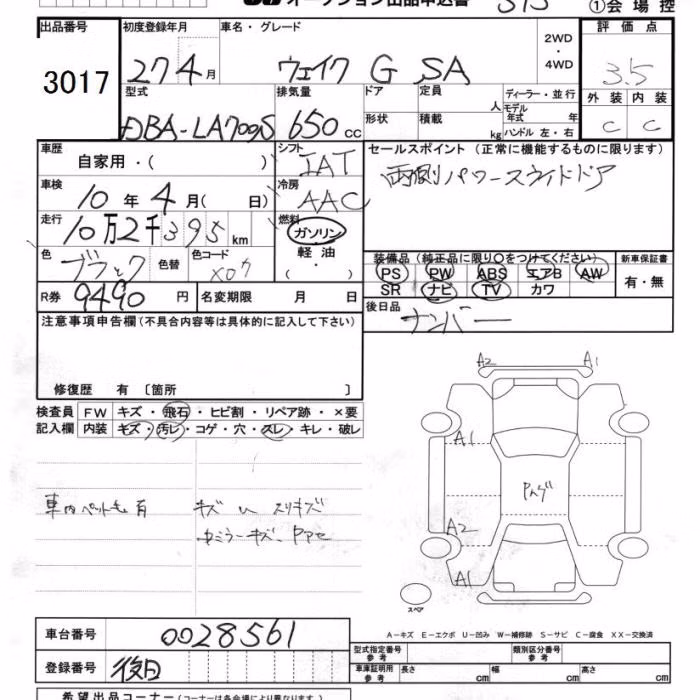 オークション出品申込書
①会場控
出品番号
3017
初度登録年月
27 4月
車名・グレード
ウェイク G SA
2WD・4WD
評価点
3.5
外装 内装
C C
型式
DBA-LA700S
排気量
650 cc
ドア
形状
定員 人
積載 kg
ディーラー・並行
モデル年式 年
ハンドル 左・右
車歴
自家用・( )
シフト
IAT
セールスポイント (正常に機能するものに限ります)
両側パワースライドドア
車検
10年 4月( 日)
冷房
AAC
走行
10万2千395 km
燃料
ガソリン・軽油・( )
色
ブラック
色替
色コード
X07
R券
9490円
名変期限 月 日
装備品 (純正品に限り○をつけてください)
PS PW ABS エアB AW
SR ナビ TV カワ
新車保証書
有・無
後日品
ナンバー
注意事項申告欄(不具合内容等は具体的に記入して下さい)
修復歴 有 〔箇所 〕
検査員記入欄
FW キズ・飛石・ヒビ割・リペア跡・×要
内装 キズ・汚レ・コゲ・穴・スレ・キレ・破レ
車内ペット毛有
キズ
スリキズ
A2 A1
A1
A2
A1
スペア
A-キズ E-エクボ U-凹み W-補修跡 S-サビ C-腐食 XX-交換済
車台番号
0028561
登録番号
後日
型式指定番号 参考
類別区分番号 参考
車庫証明用 参考
長さ cm 幅 cm 高さ cm
希望出品コーナー (コーナーは各会場により異なります)